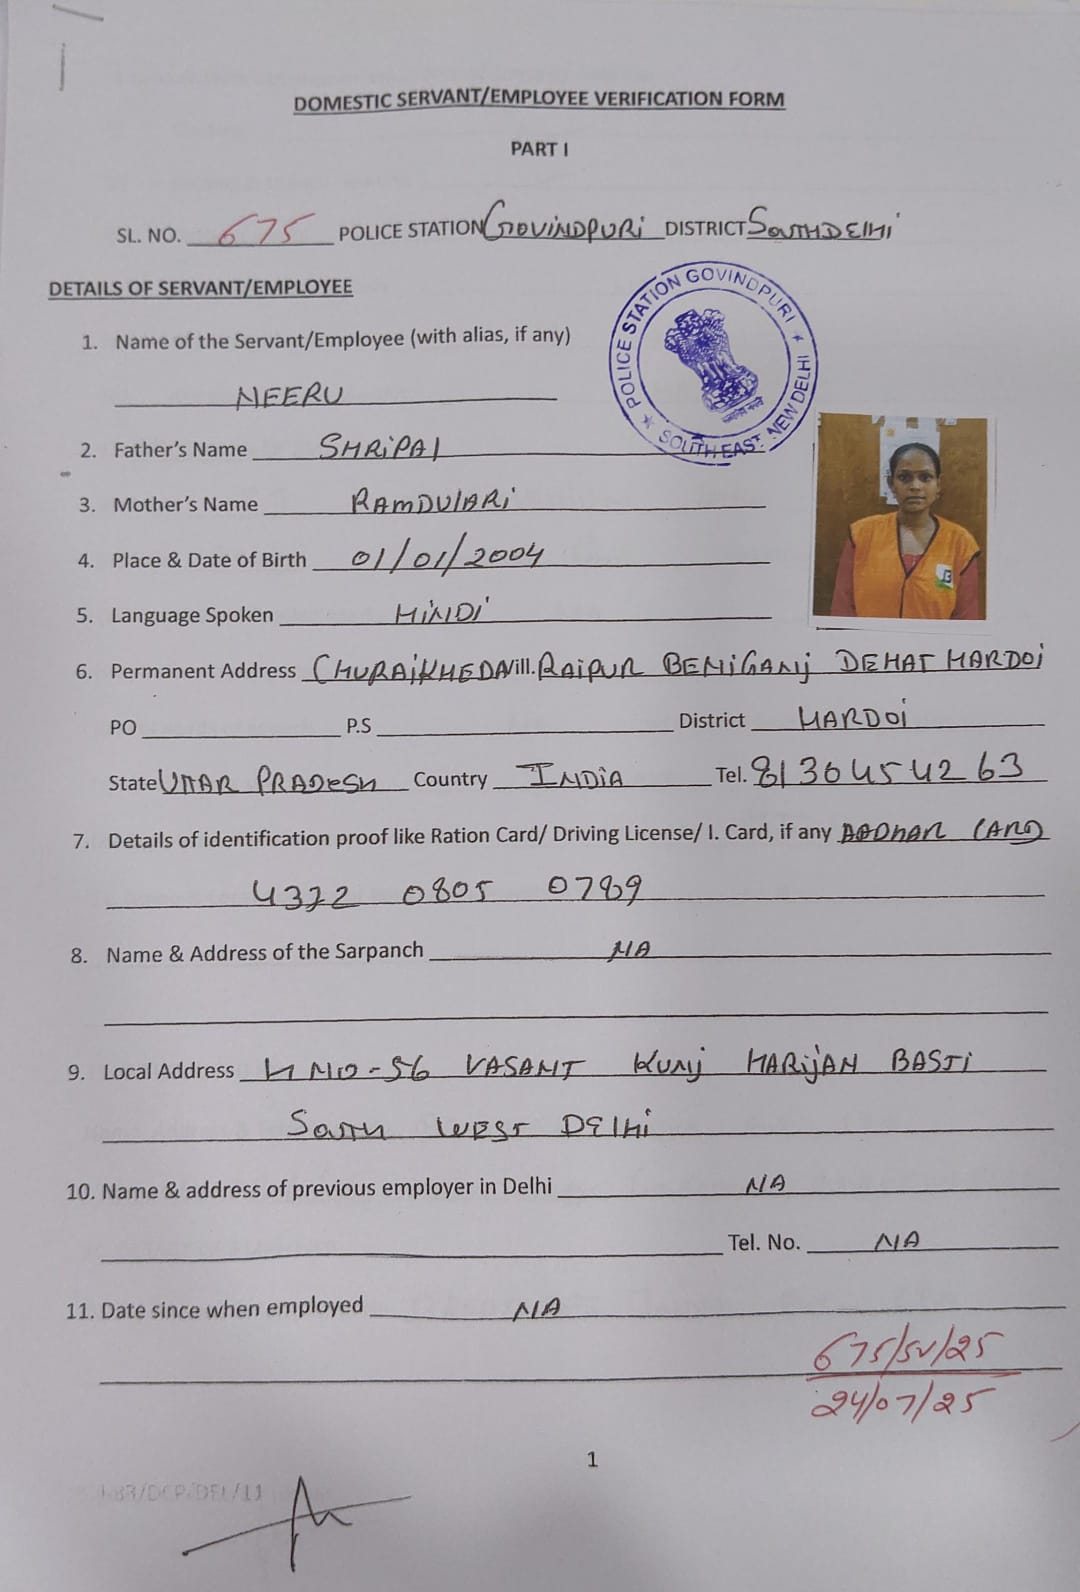 DOMESTIC SERVANT/EMPLOYEE VERIFICATION FORM
PART I
SL. NO. 675 POLICE STATION GOVINDPURi DISTRICT SOUTH DElHi
POLICE STATION GOVINDPURI
SOUTH EAST. NEW DELHI
DETAILS OF SERVANT/EMPLOYEE
1. Name of the Servant/Employee (with alias, if any)
NEERU
2. Father's Name SHRiPAl
3. Mother's Name RAMDUlARi
4. Place & Date of Birth 01/01/2004
5. Language Spoken HiNDi
6. Permanent Address CHURAiKHEDA Vill. RAiPUR BENiGANj DEHAT HARDOi
PO P.S District HARDOi
State UTTAR PRADESH Country INDiA Tel. 8130454263
7. Details of identification proof like Ration Card/ Driving License/ I. Card, if any AADHAR CARD
4372 0805 0789
8. Name & Address of the Sarpanch NA
9. Local Address H NO-56 VASANT KUNj HARijAN BASTi
SOUTH WEST DElHi
10. Name & address of previous employer in Delhi NA
Tel. No. NA
11. Date since when employed NA
675/SV/25
24/07/25
1